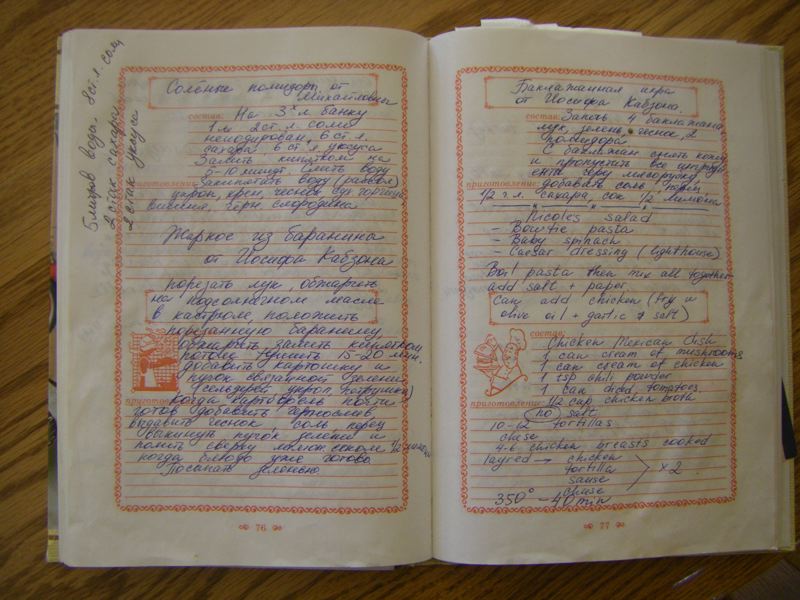 5 литров воды. 8 ст. л. соли
2 стак сахара
2 стак уксуса
Солёные помидоры от
Михайловны
состав:
На 3х л банку
1 л 2 ст. л. соли
нейодирован, 6 ст л.
сахара 6 ст л уксуса
Залить кипятком на
5-10 минут. Слить воду
приготовление:
Закипятить воду (рассол)
укроп, хрен, чеснок
вишения, черн. смородина
Жаркое из баранины
от Иосифа Кабзона
порезать лук, обжарить
на подсолнечном масле
в кастрюле, положить
порезанную баранину
обжарить, залить кипятком
потом тушить 15-20 мин.
добавить картошку и
пучок связанной зелени
(сельдерей укроп, петрушка)
приготовление:
когда картофель почти
готов добавить чернослив,
выдавить чеснок, соль, перец
выкинуть пучок зелени и
полить сверху лимон. соком 1/2 лимона
когда блюдо уже готово
Посыпать зеленью
76
Баклажанная икра
от Иосифа Кабзона.
состав:
Запечь 4 баклажана
лук, зелень, чеснок, 2
помидора
С баклажан снять кожу
и пропустить все ингреди
енты через мясорубку
приготовление:
добавить соль перец
1/2 ч. л. сахара, сок 1/2 лимона
Nicoles salad
- Bowtie pasta
- Baby spinach
- Caesar dressing (lighthouse)
Boil pasta then mix all together
add salt + paper.
Can add chicken (fry w
olive oil + garlic & salt)
состав:
Chicken Mexican Dish
1 can cream of mushrooms
1 can cream of chicken
1 tsp chili powder
1 can diced tomatoes
приготовление:
1/2 cup chicken broth
no salt
10-12 tortillas
chese
4-6 chicken breasts cooked
layred → chicken
tortilla
sause
chese
x 2
350° - 40 min
77